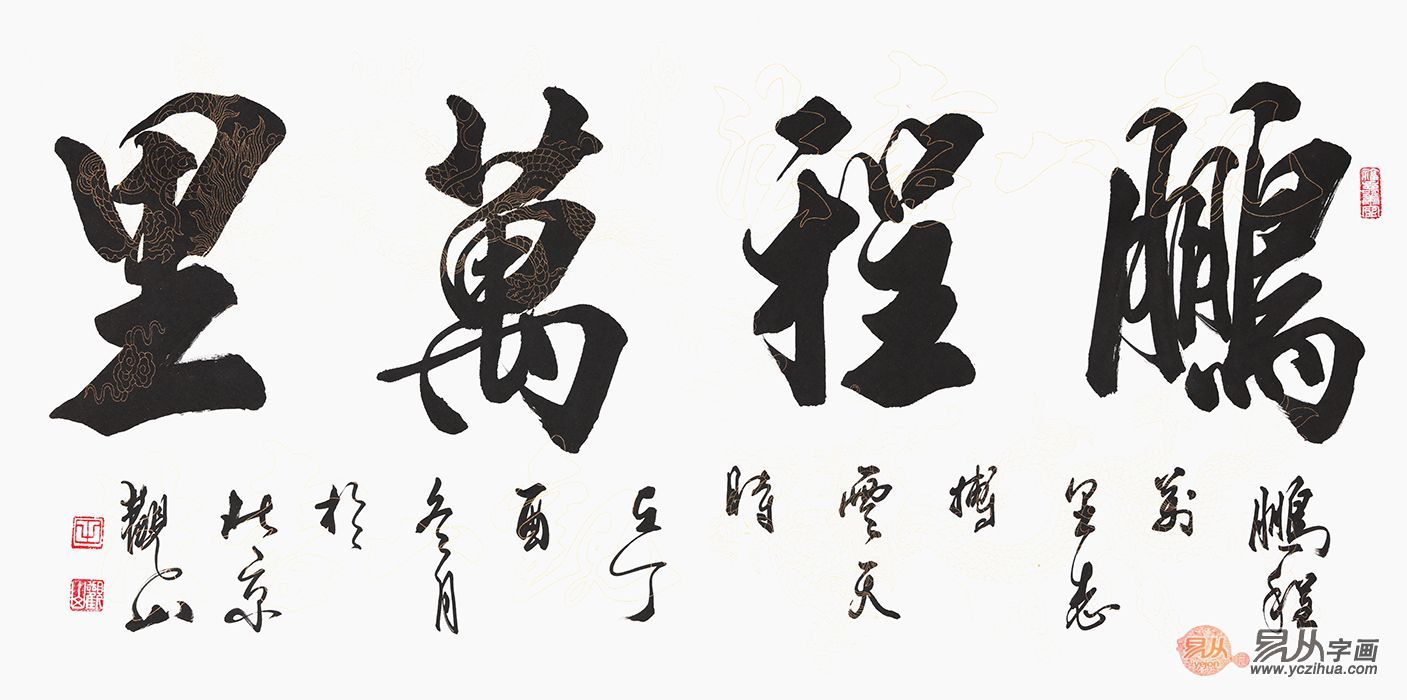 鵬程萬里
鵬程
萬
里志
搏
雲天
時
在丁
酉
冬月
於
北京
觀山
易从字画
yejon
www.yczihua.com